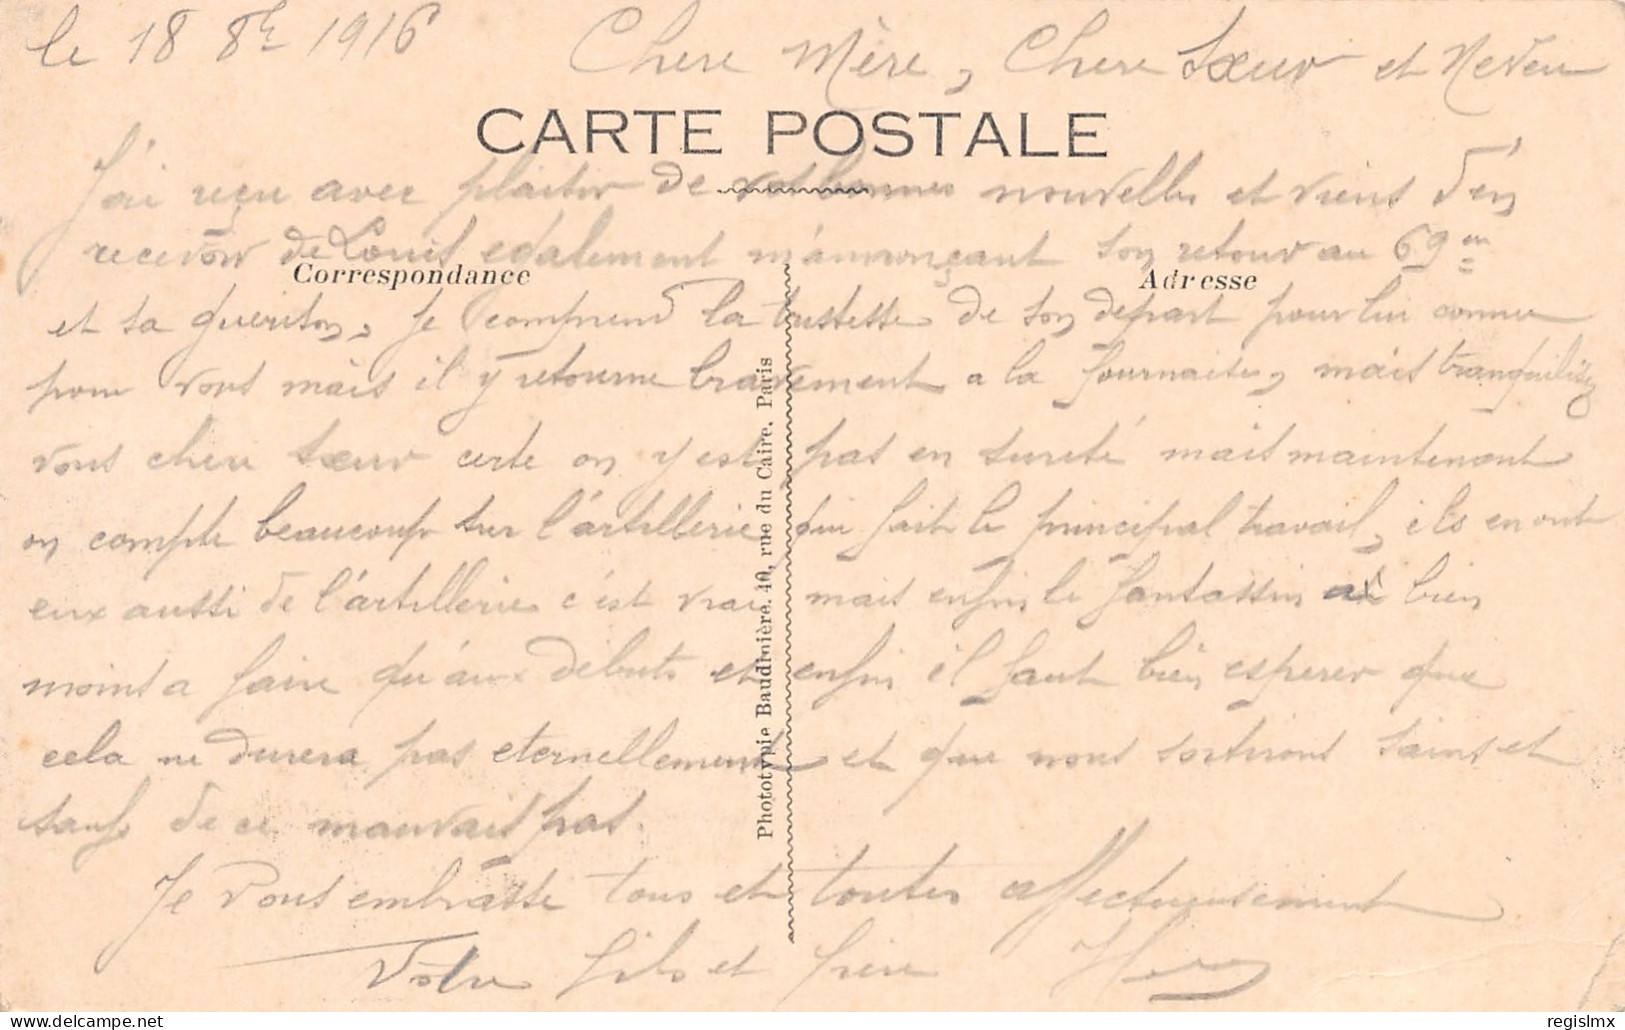 le 18 8bre 1916
Chere Mère, Chere Sœur et Neveu
CARTE POSTALE
J'ai reçu avec plaisir de vos bonnes nouvelles et viens d'en
recevoir de Louis egalement m'annonçant son retour au 69em
Correspondance
Adresse
et sa guerison, je comprend la tristesse de son depart pour lui comme
pour vous mais il y retourne bravement a la fournaise, mais tranquilisez
vous chere sœur certe on y est pas en sureté mais maintenant
on compte beaucoup sur l'artillerie qui fait le principal travail, ils en ont
eux aussi de l'artillerie c'est vrai mais enfin le fantassin a bien
moins a faire qu'aux debuts et enfin il faut bien esperer que
cela ne durera pas eternellement et que nous sortirons sains et
saufs de ce mauvais pas.
Je vous embrasse tous et toutes affectueusement
Votre fils et frère
Phototypie Baudinière. 40, rue du Caire. Paris
delcampe.net
regislmx